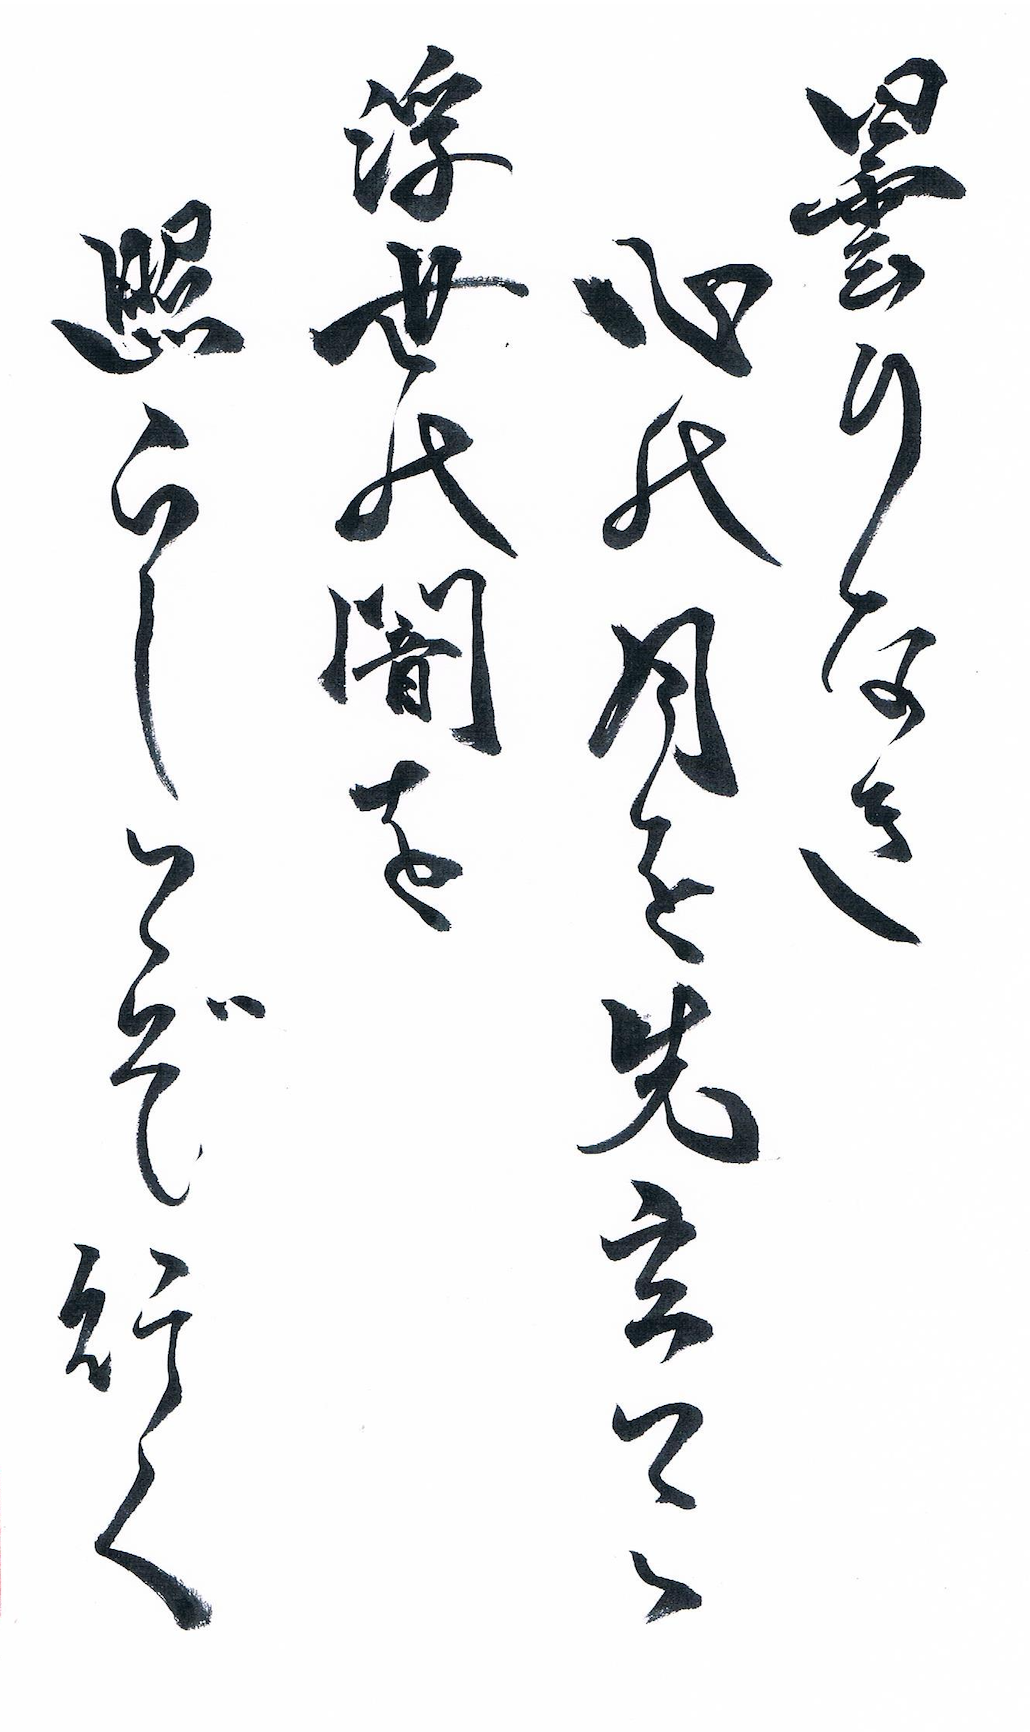 曇りなき
心の月を先立てて
浮世の闇を
照らしてぞ行く